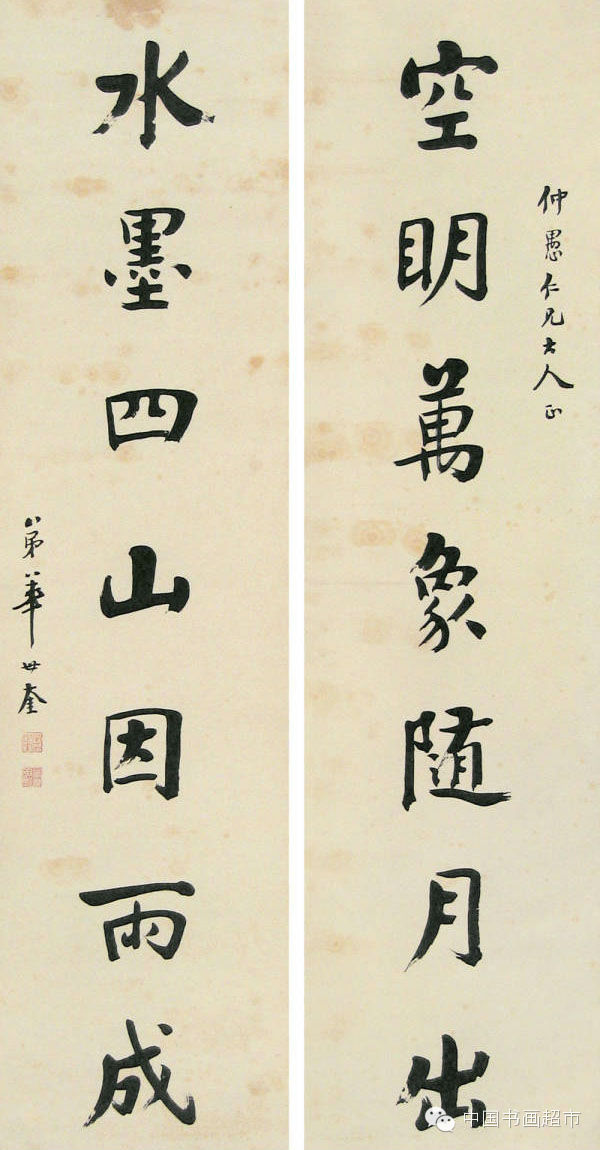 仲愚仁兄大人正
空明萬象隨月出
水墨四山因雨成
弟華世奎
中国书画超市